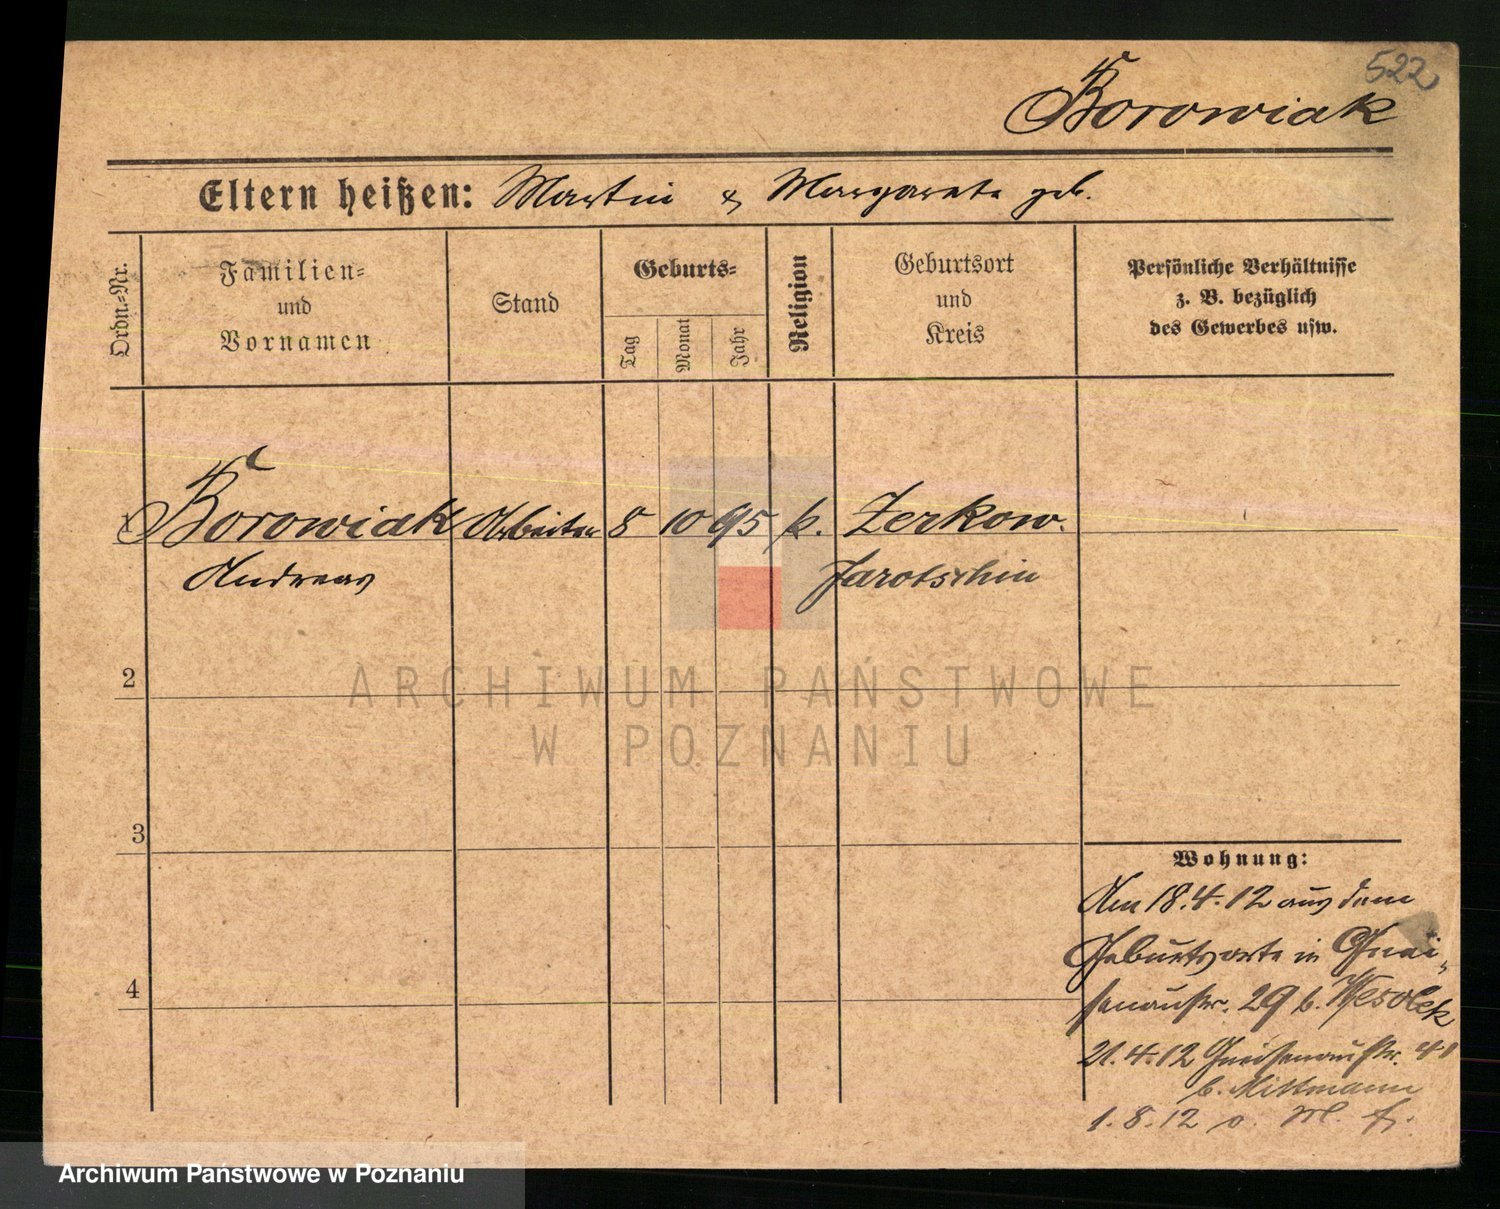 522
Borowiak
Eltern heißen: Martin & Margareta geb.
Ordn.-Nr.
Familien- und Vornamen
Stand
Geburts-
Tag
Monat
Jahr
Religion
Geburtsort und Kreis
Persönliche Verhältnisse
z. B. bezüglich
des Gewerbes usw.
1 Borowiak Arbeiter 8 10 95 k. Zerkow.
Andreas Jarotschin
2
3
4
Wohnung:
Am 18.4.12 aus dem
Geburtsorte in Gnei-
senaustr. 29 b. Wesolek
21.4.12 Gneisenaustr. 41
b. Mittmann
1.8.12
ARCHIWUM PAŃSTWOWE
W POZNANIU
Archiwum Państwowe w Poznaniu